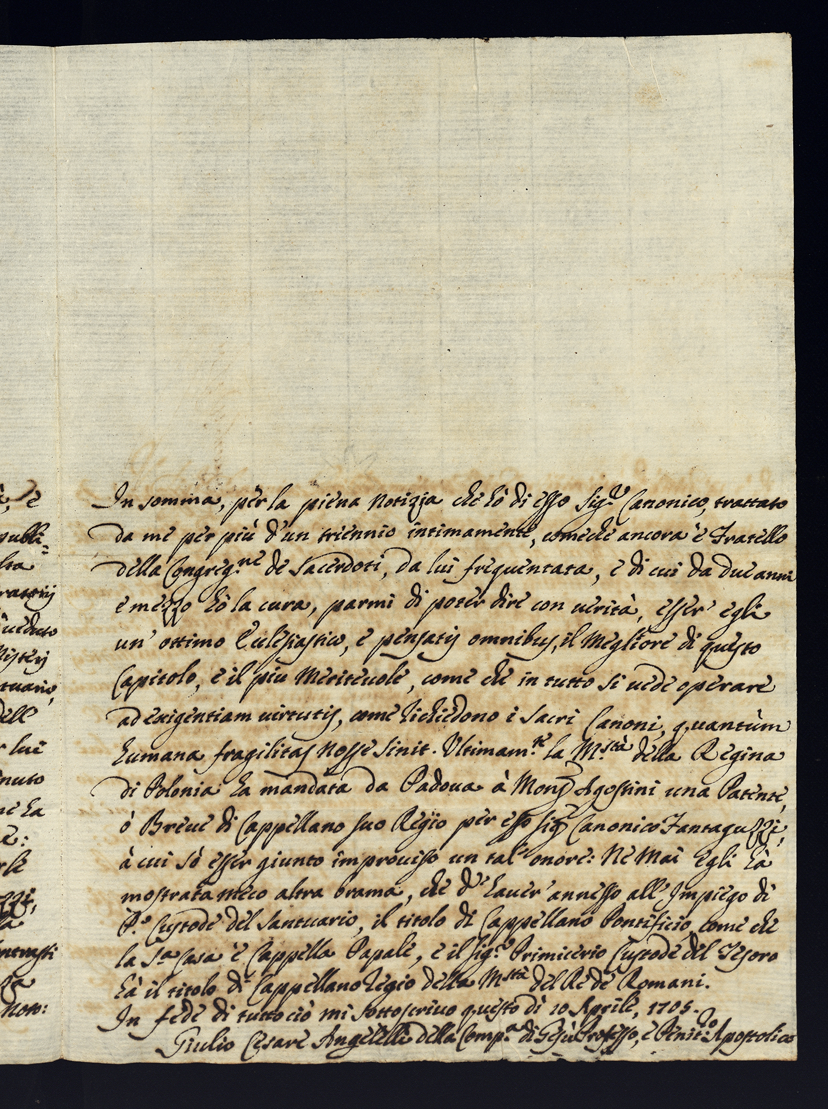 In somma, per la piena notizia che hò di esso Sig.re Canonico, trattato
da me per più d'un triennio intimamente, come che ancora è Fratello
della Congreg.ne de Sacerdoti, da lui frequentata, e di cui da due anni
e mezzo hò la cura, parmi di poter dire con verità, esser' egli
un' ottimo Eclesiastico, e pensatis omnibus, il Megliore di questo
Capitolo, e il più Meritevole, come che in tutto si vede operare
ad exigentiam virtutis, come richiedono i Sacri Canoni, quantùm
humana fragilitas nosse sinit. Ultimam.te la M.stà della Regina
di Polonia ha mandata da Padova à Mons.r Agostini una Patente,
ò Breve di Cappellano suo Regio per esso Sig.r Canonico Fantaguzzi,
à cui sò esser giunto improviso un tal' onore: Ne Mai Egli hà
mostrata meco altra brama, che d' haver' annesso all' Impiego di
P.o Custode del Santuario, il titolo di Cappellano Pontificio come che
la S.a Casa è Cappella Papale, e il Sig.re Primicerio Custode del Tesoro
hà il titolo di Cappellano Regio della M.stà del Re de Romani.
In fede di tutto ciò mi sottoscrivo questo dì 10 Aprile, 1705.
Giulio Cesare Angelelli della Comp.a di Gesù Professo, e Penit.o Apostolico
ò, e
publi=
ratorij
veduto
Misterij
tuario,
dell'
r lui
nuto
ne ha
e:
Noto: